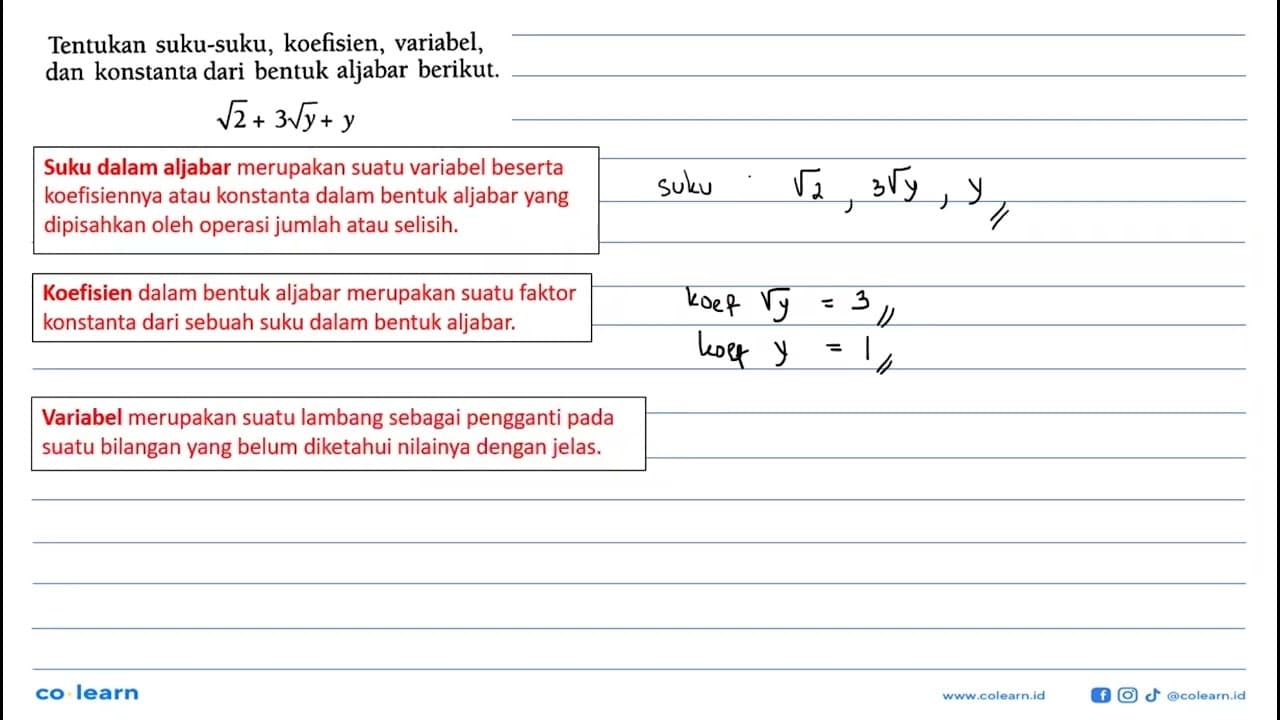 Tentukan suku-suku, koefisien, variabel,
dan konstanta dari bentuk aljabar berikut.
√2 + 3√y + y
Suku dalam aljabar merupakan suatu variabel beserta
koefisiennya atau konstanta dalam bentuk aljabar yang
dipisahkan oleh operasi jumlah atau selisih.
suku : √2 , 3√y , y //
Koefisien dalam bentuk aljabar merupakan suatu faktor
konstanta dari sebuah suku dalam bentuk aljabar.
koef √y = 3 //
koef y = 1 //
Variabel merupakan suatu lambang sebagai pengganti pada
suatu bilangan yang belum diketahui nilainya dengan jelas.
co learn
www.colearn.id
@colearn.id